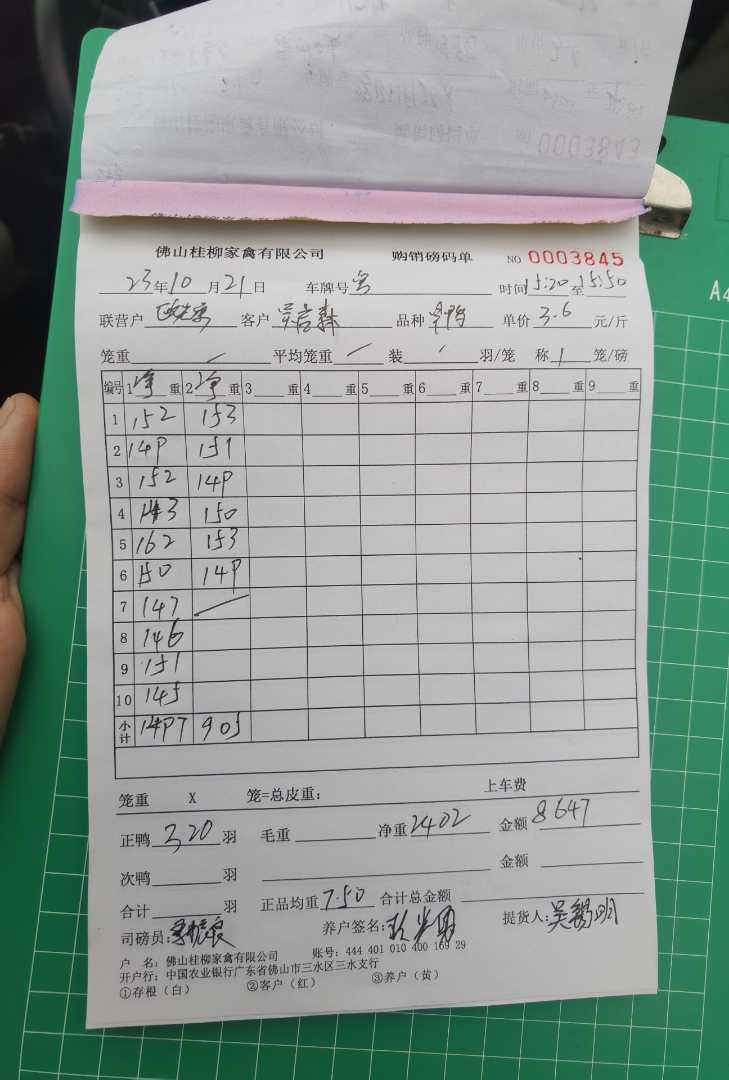 佛山桂柳家禽有限公司 购销磅码单 NO 0003845
23年10月21日 车牌号 粤 时间15:20至15:50
联营户 客户 吴育森 品种 单价 3.6 元/斤
笼重 / 平均笼重 / 装 / 羽/笼 称 1 笼/磅
编号 1 净 重 2 净 重 3 重 4 重 5 重 6 重 7 重 8 重 9 重
1 152 153
2 149 151
3 152 149
4 143 150
5 162 153
6 150 149
7 147 /
8 146
9 151
10 145
小计 1497 905
笼重 X 笼=总皮重: 上车费
正鸭 320 羽 毛重 净重 2402 金额 8647
次鸭 羽 金额
合计 羽 正品均重 7.50 合计总金额
司磅员: 养户签名: 提货人:
户 名: 佛山桂柳家禽有限公司 账号: 444 401 010 400 169 29
开户行: 中国农业银行广东省佛山市三水区三水支行
①存根(白) ②客户(红) ③养户(黄)